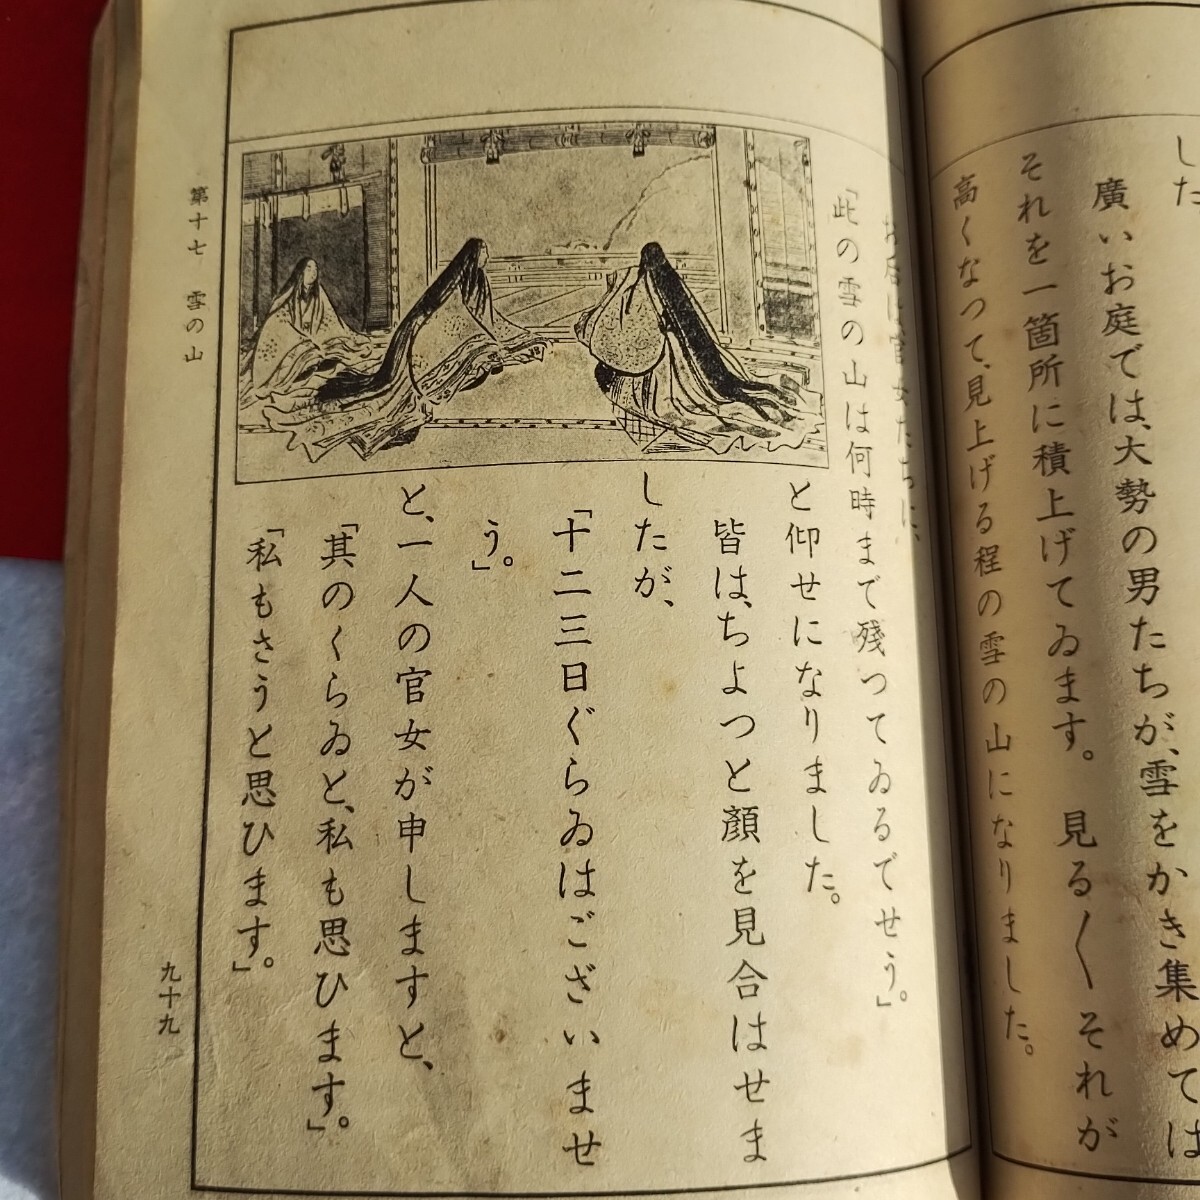 した
廣いお庭では、大勢の男たちが、雪をかき集めては
それを一箇所に積上げてゐます。見る〱それが
高くなつて、見上げる程の雪の山になりました。
お后は官女たちに、
「此の雪の山は何時まで殘つてゐるでせう」。
と仰せになりました。
皆は、ちよつと顔を見合はせま
したが、
「十二三日ぐらゐはございませ
う。」
と、一人の官女が申しますと、
「其のくらゐと、私も思ひます」。
「私もさうと思ひます」。
第十七 雪の山
九十九